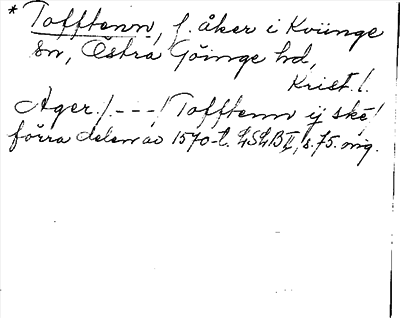 * Tofftenn, f. åker i Kviinge
sn, Östra Göinge hd,
Krist. l.
Ager /.---/ Tofftenn ij skē
förra delen av 1570-t. LSLB II, s. 75. orig.